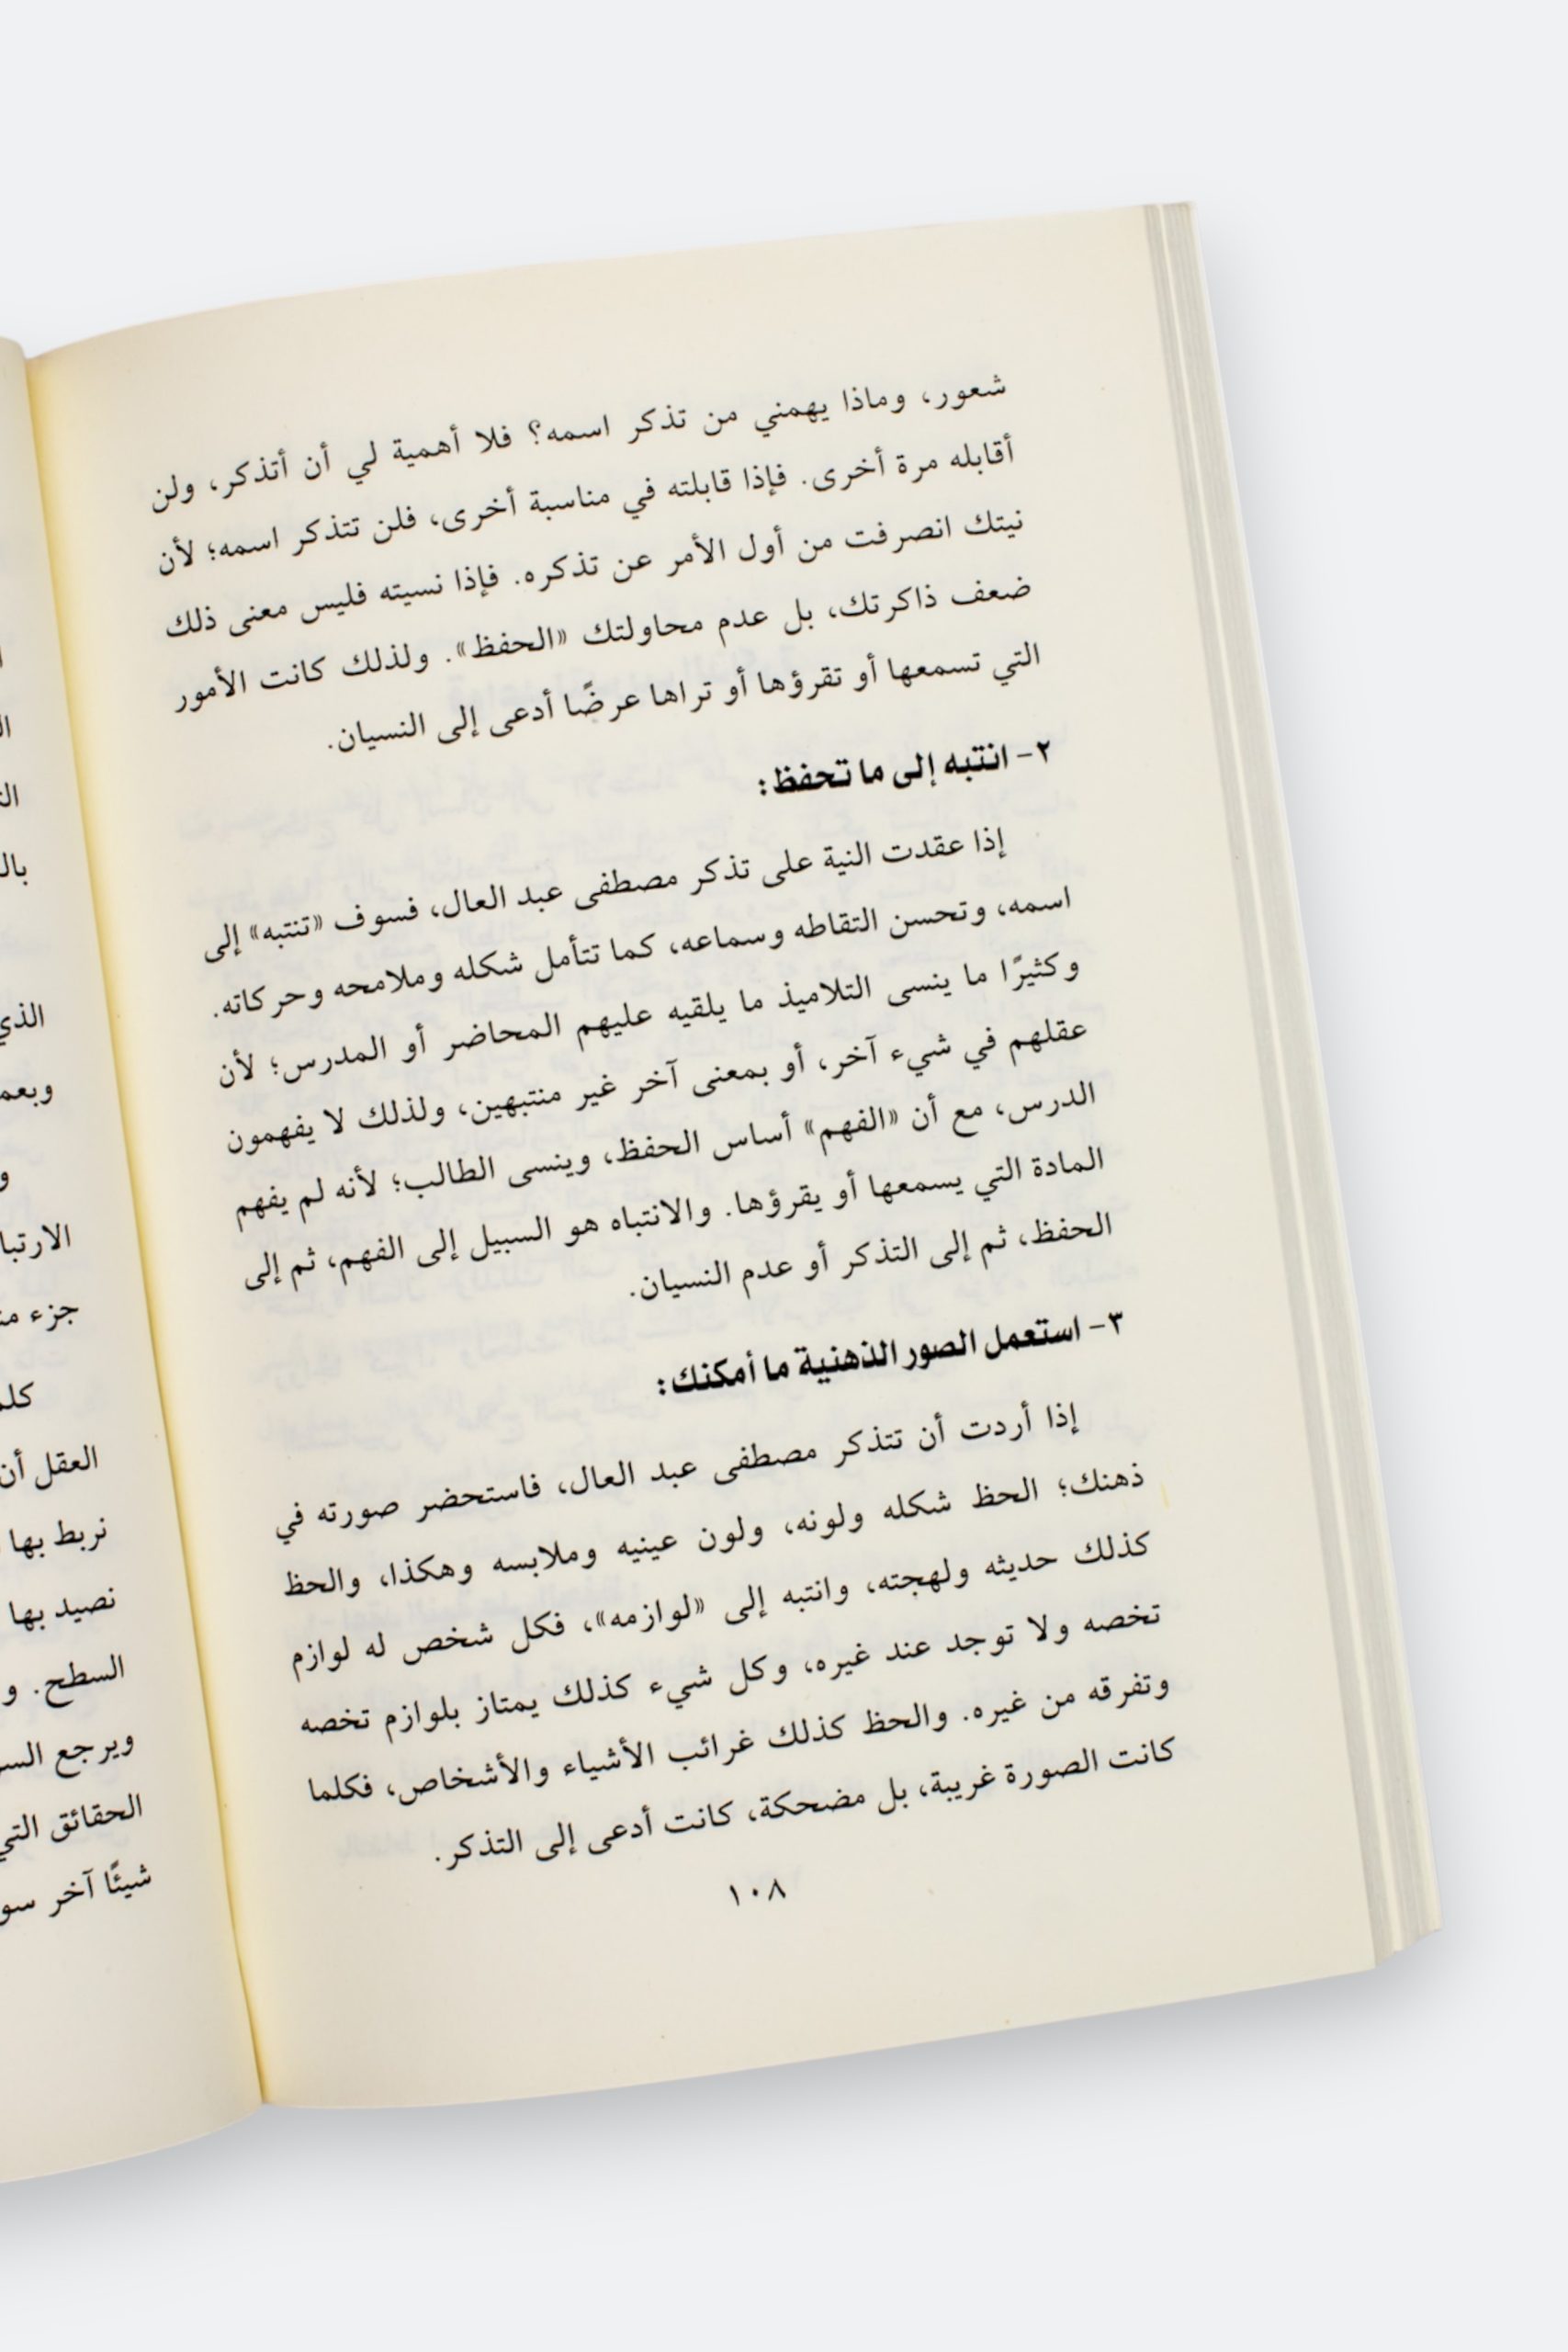 شعور، وماذا يهمني من تذكر اسمه؟ فلا أهمية لي أن أتذكر، ولن
أقابله مرة أخرى. فإذا قابلته في مناسبة أخرى، فلن تتذكر اسمه؛ لأن
نيتك انصرفت من أول الأمر عن تذكره. فإذا نسيته فليس معنى ذلك
ضعف ذاكرتك، بل عدم محاولتك «الحفظ». ولذلك كانت الأمور
التي تسمعها أو تقرؤها أو تراها عرضًا أدعى إلى النسيان.
٢- انتبه إلى ما تحفظ:
إذا عقدت النية على تذكر مصطفى عبد العال، فسوف «تنتبه» إلى
اسمه، وتحسن التقاطه وسماعه، كما تتأمل شكله وملامحه وحركاته.
وكثيرًا ما ينسى التلاميذ ما يلقيه عليهم المحاضر أو المدرس؛ لأن
عقلهم في شيء آخر، أو بمعنى آخر غير منتبهين، ولذلك لا يفهمون
الدرس، مع أن «الفهم» أساس الحفظ، وينسى الطالب؛ لأنه لم يفهم
المادة التي يسمعها أو يقرؤها. والانتباه هو السبيل إلى الفهم، ثم إلى
الحفظ، ثم إلى التذكر أو عدم النسيان.
٣- استعمل الصور الذهنية ما أمكنك:
إذا أردت أن تتذكر مصطفى عبد العال، فاستحضر صورته في
ذهنك؛ الحظ شكله ولونه، ولون عينيه وملابسه وهكذا، والحظ
كذلك حديثه ولهجته، وانتبه إلى «لوازمه»، فكل شخص له لوازم
تخصه ولا توجد عند غيره، وكل شيء كذلك يمتاز بلوازم تخصه
وتفرقه من غيره. والحظ كذلك غرائب الأشياء والأشخاص، فكلما
كانت الصورة غريبة، بل مضحكة، كانت أدعى إلى التذكر.
١٠٨
الذي
جزء
العقل أن
نربط بها
نصيد بها
السطح. و
ويرجع
الحقائق التي
شيئًا آخر